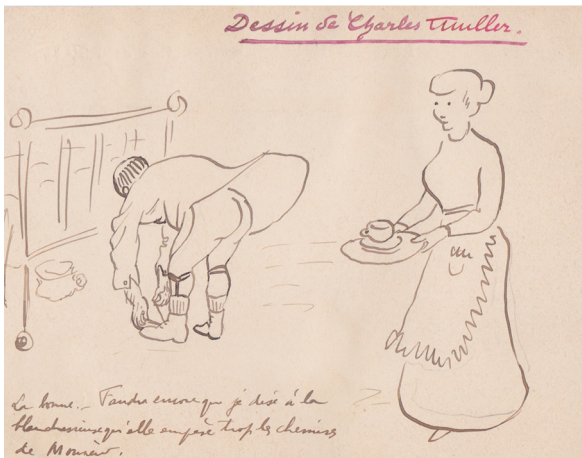 Dessin de Charles Muller.
La bonne. — Faudra encore que je dise à la
blanchisseuse qu'elle empèse trop les chemises
de Monsieur.